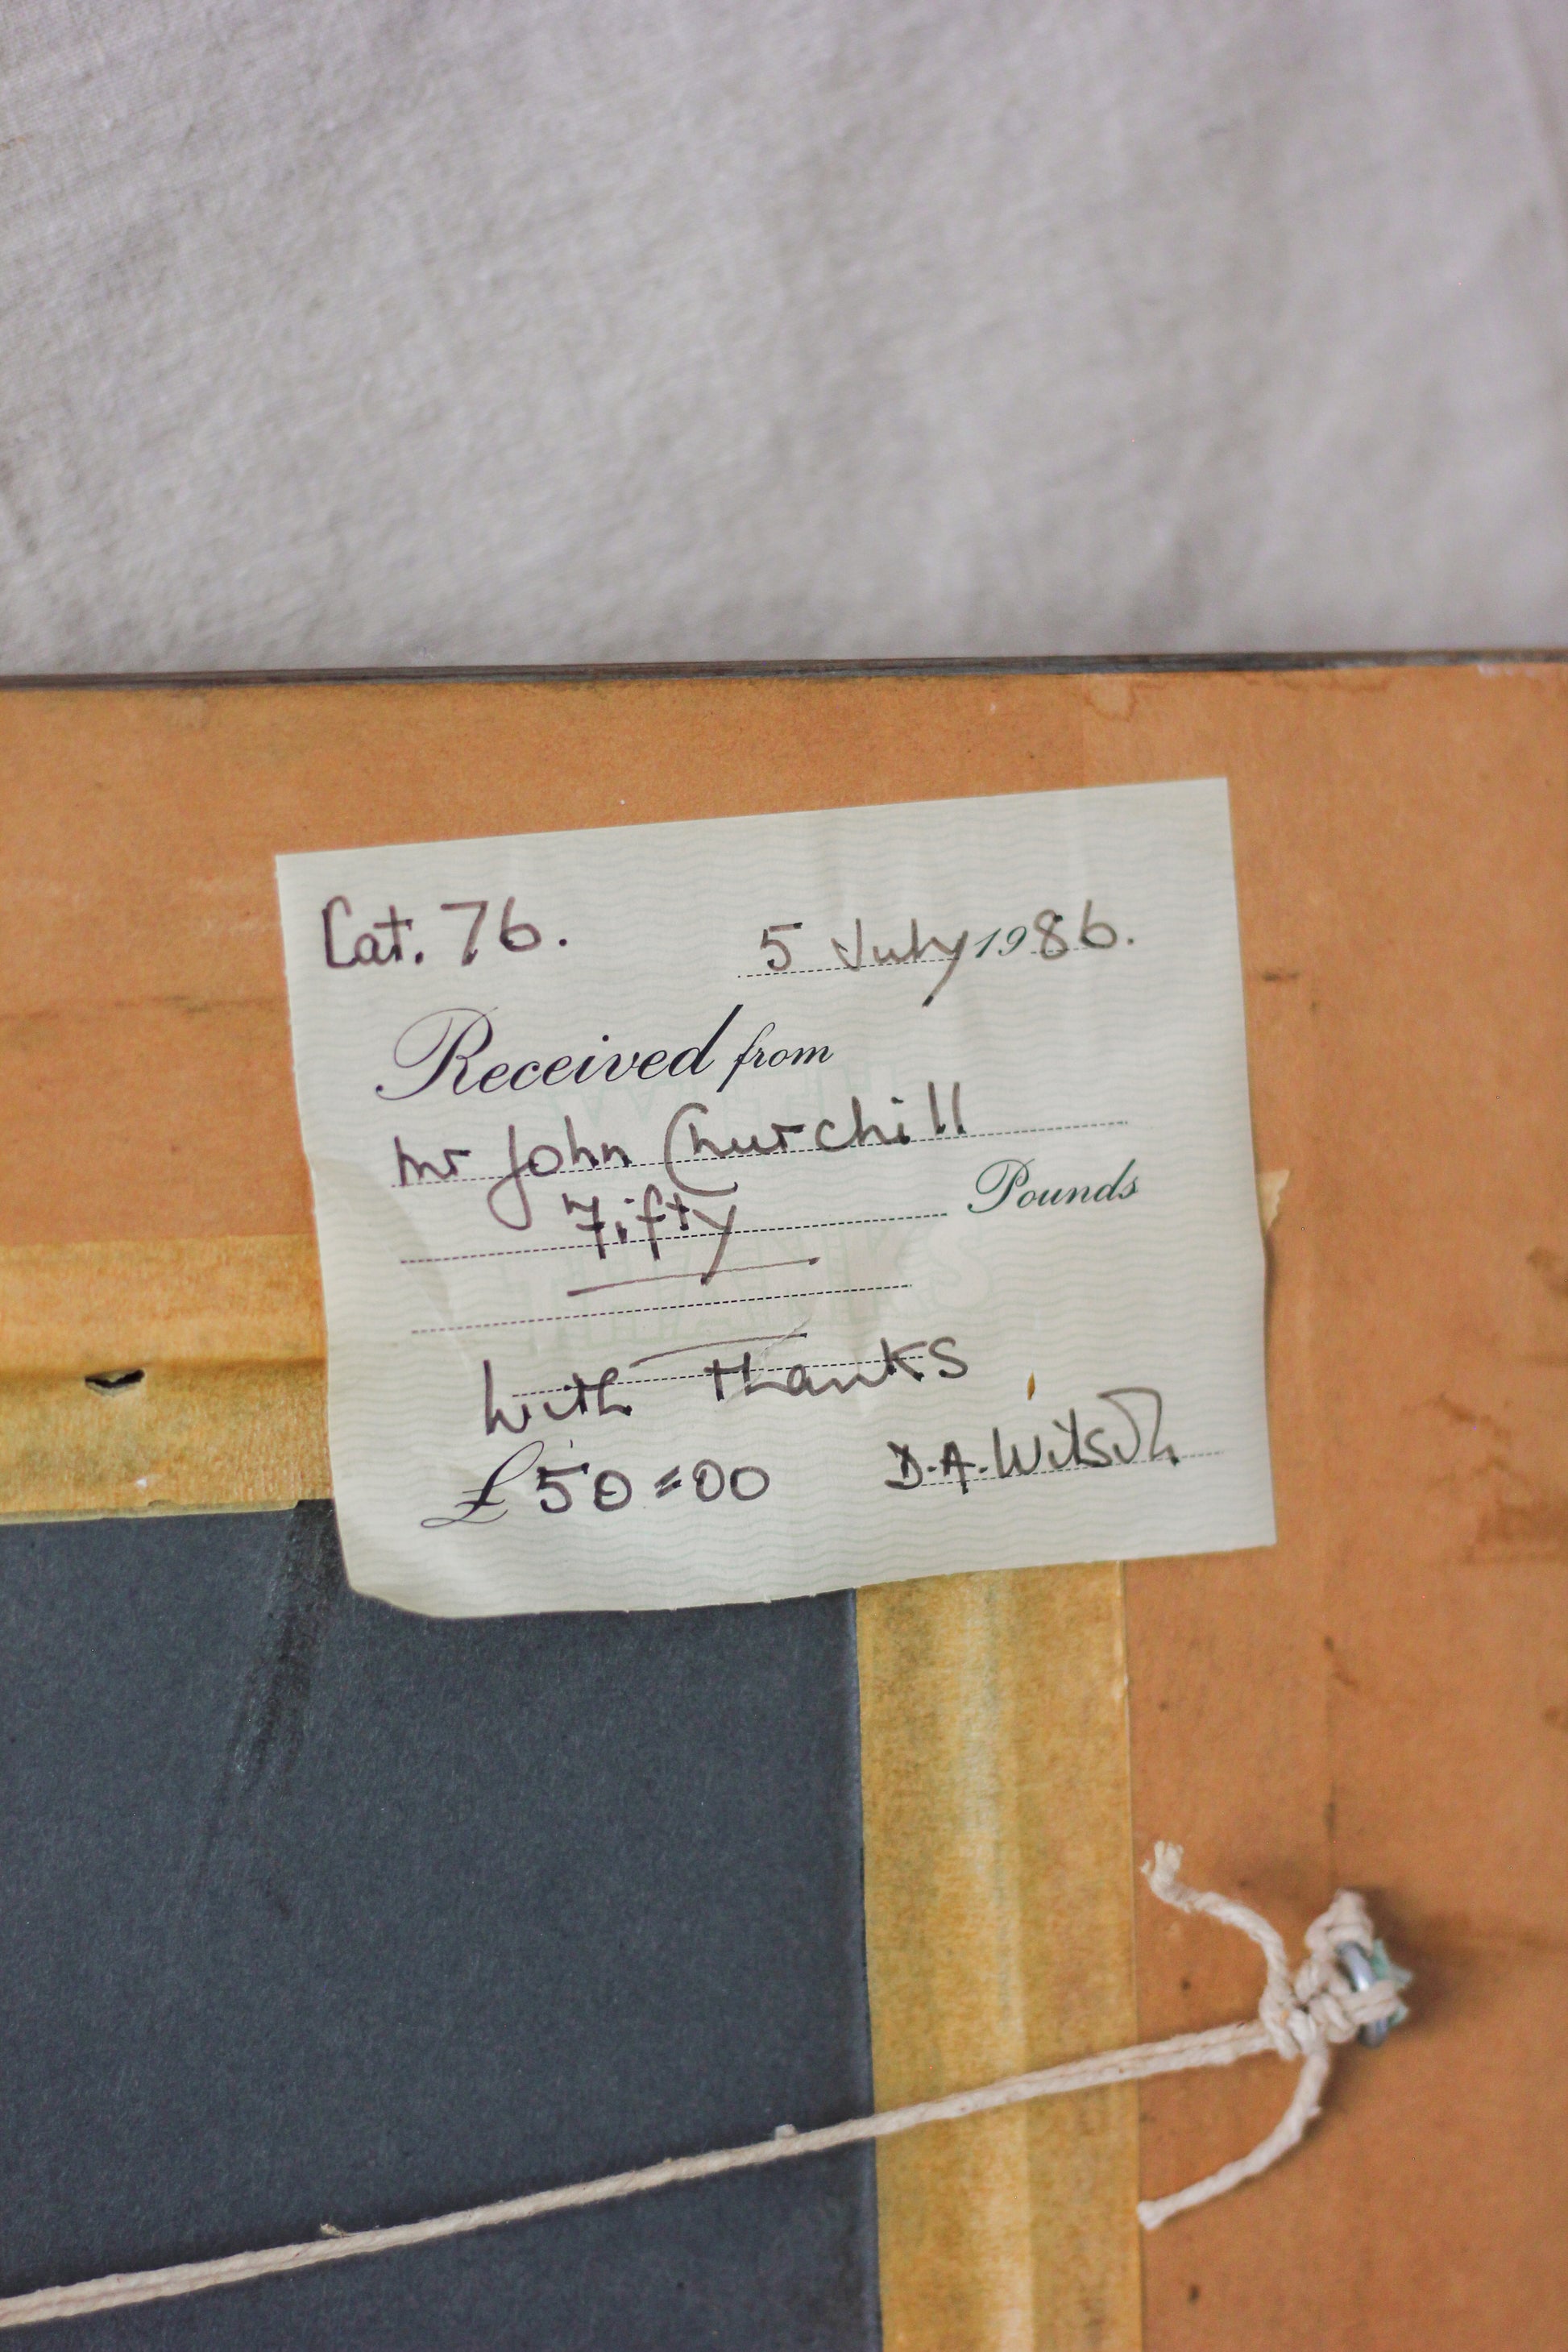 Cat. 76. 5 July 1986.
Received from
Mr John Churchill
Fifty Pounds
With thanks
£50=00 D.A. Wilson
WITH
THANKS